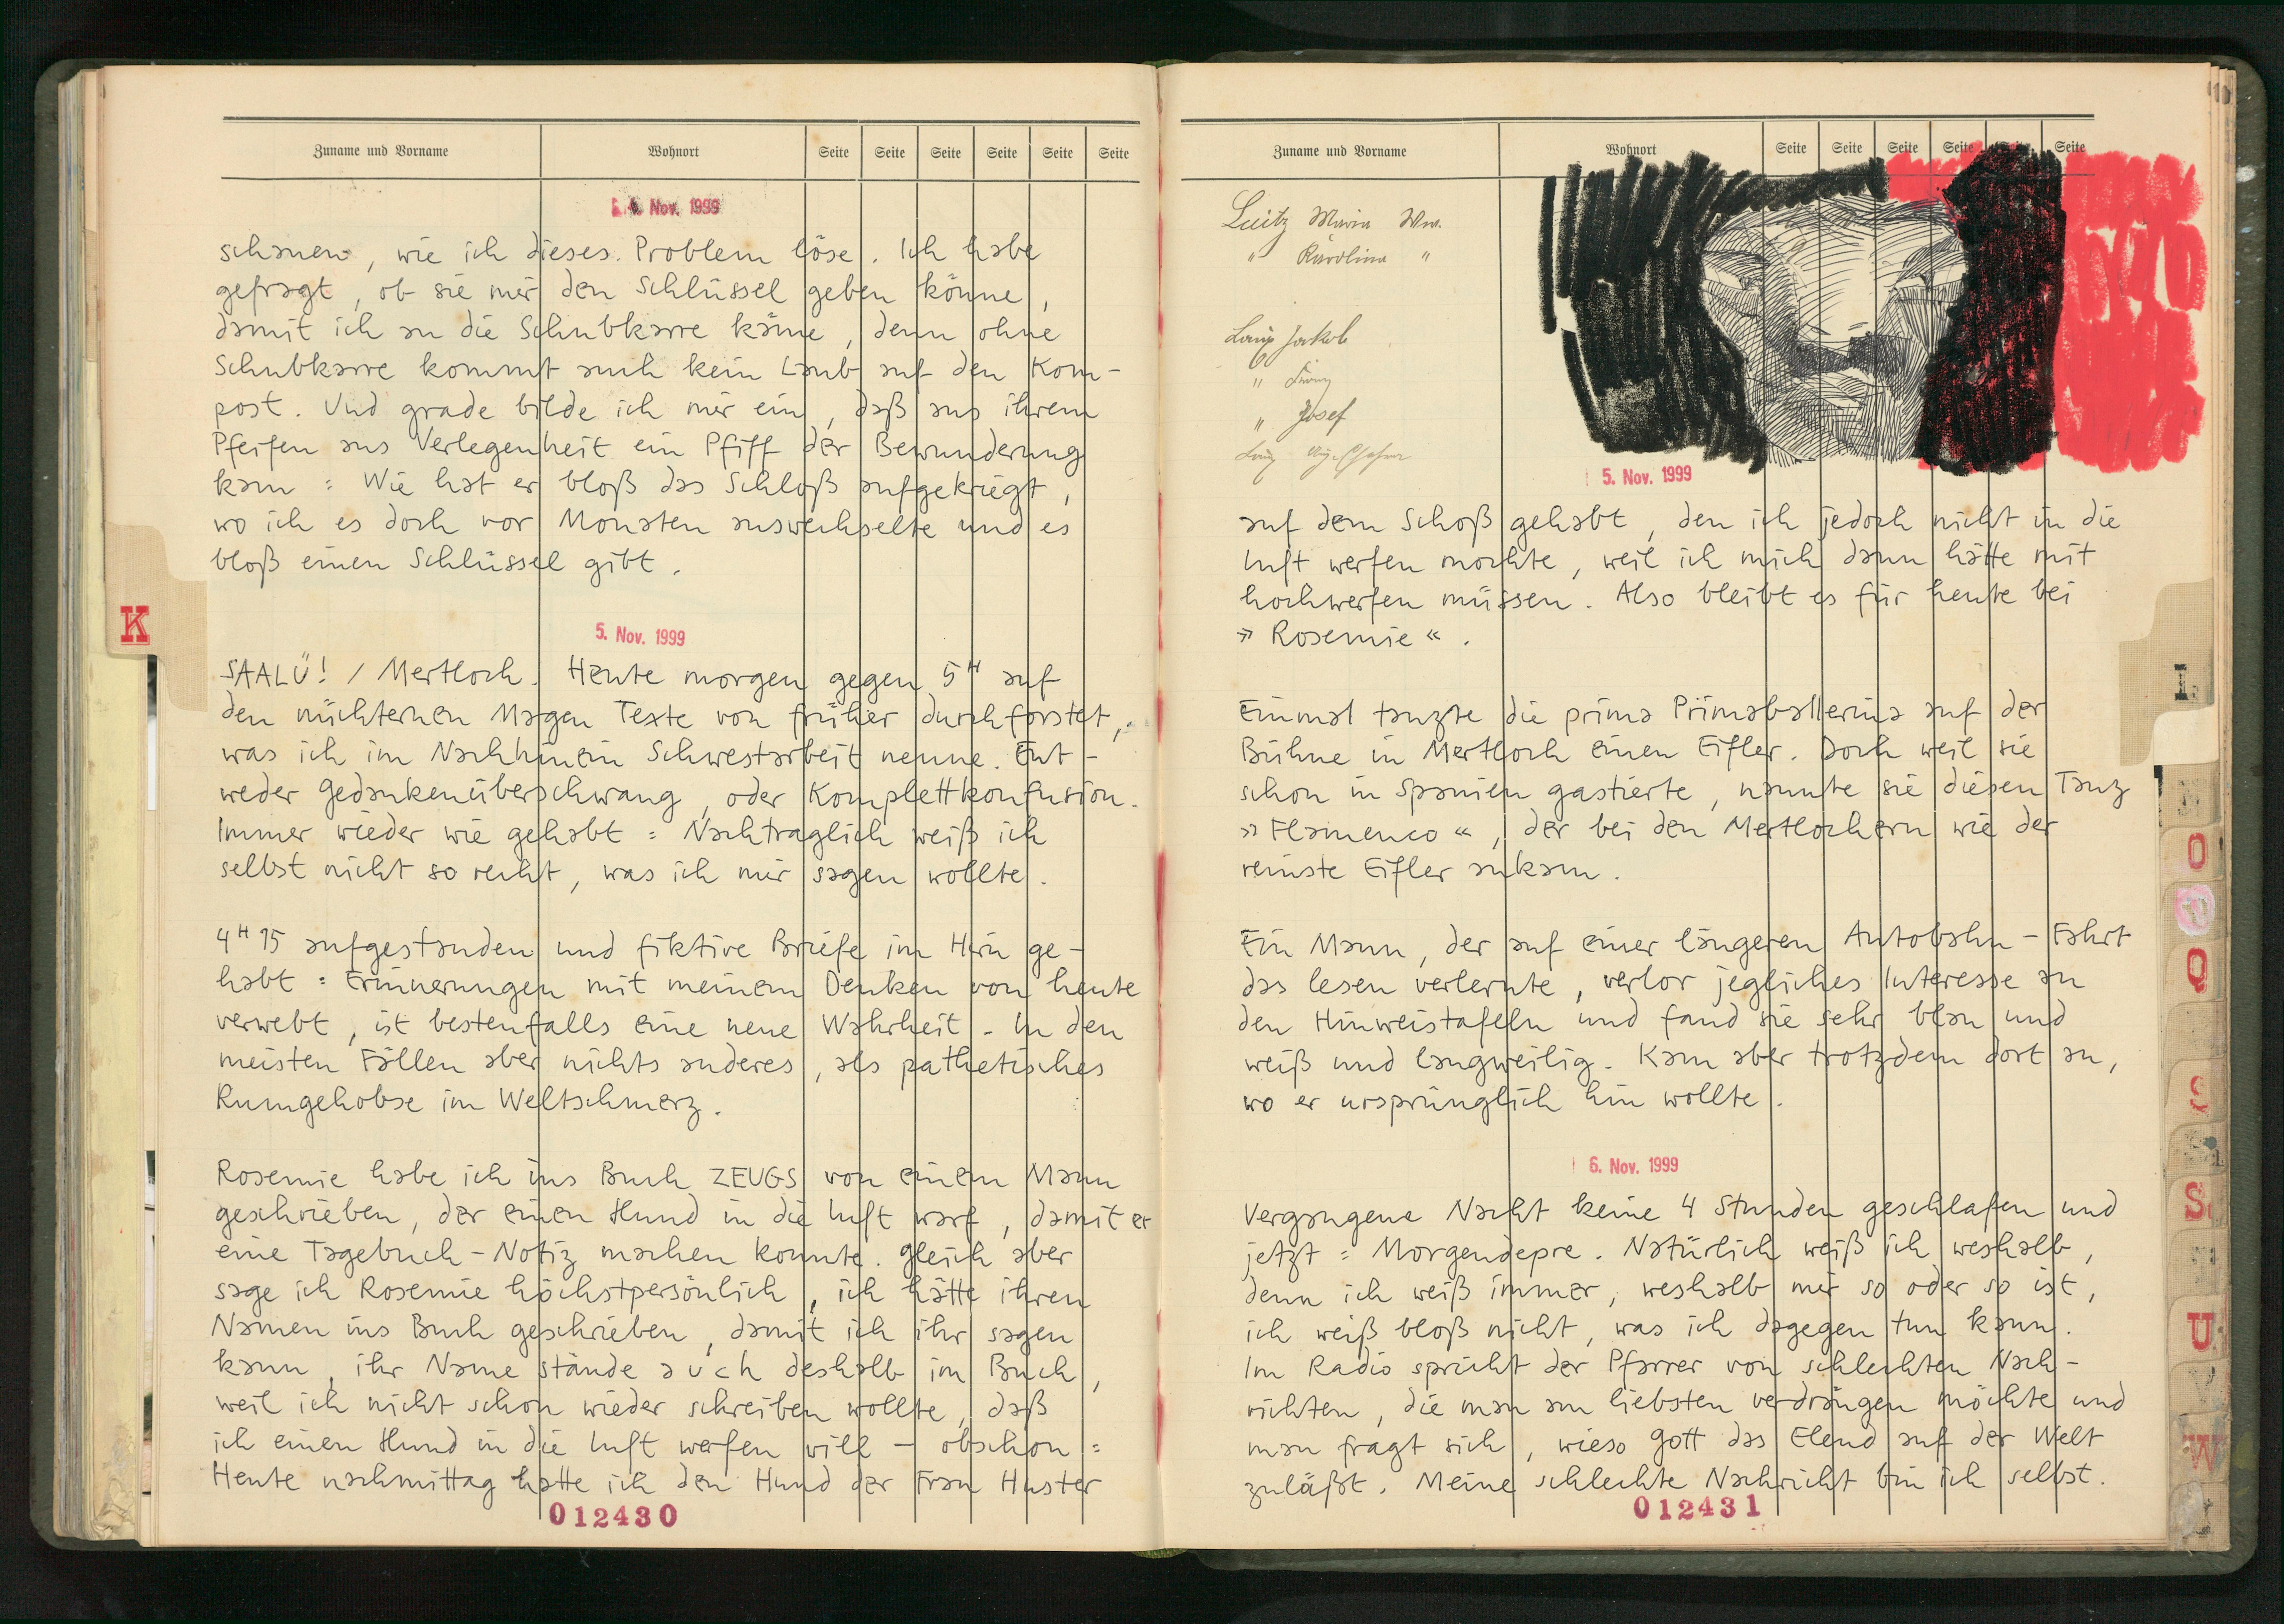 Zuname und Vorname Wohnort Seite Seite Seite Seite Seite Seite
4. Nov. 1999
schauen, wie ich dieses Problem löse. Ich habe
gefragt, ob sie mir den Schlüssel geben könne,
damit ich an die Schubkarre käme, denn ohne
Schubkarre kommt auch kein Laub auf den Kom-
post. Und grade bilde ich mir ein, daß aus ihrem
Pfeifen aus Verlegenheit ein Pfiff der Bewunderung
kam: Wie hat er bloß das Schloß aufgekriegt,
wo ich es doch vor Monaten auswechselte und es
bloß einen Schlüssel gibt.
K
5. Nov. 1999
SAALÜ! / Mertloch. Heute morgen gegen 5H auf
den nüchternen Magen Texte von früher durchforstet,
was ich im Nachhinein Schwestarbeit nenne. Ent-
weder Gedankenüberschwang, oder Komplettkonfusion.
Immer wieder wie gehabt: Nachträglich weiß ich
selbst nicht so recht, was ich mir sagen wollte.
4H15 aufgestanden und fiktive Briefe im Hirn ge-
habt: Erinnerungen mit meinem Denken von heute
verwebt, ist bestenfalls eine neue Wahrheit. In den
meisten Fällen aber nichts anderes, als pathetisches
Rumgehobse im Weltschmerz.
Rosemie habe ich ins Buch ZEUGS von einem Mann
geschrieben, der einen Hund in die Luft warf, damit er
eine Tagebuch-Notiz machen konnte. Gleich aber
sage ich Rosemie höchstpersönlich, ich hätte ihren
Namen ins Buch geschrieben, damit ich ihr sagen
kann, ihr Name stände auch deshalb im Buch,
weil ich nicht schon wieder schreiben wollte, daß
ich einen Hund in die Luft werfen will – obschon:
Heute nachmittag hatte ich den Hund der Frau Huster
012430
Zuname und Vorname Wohnort Seite Seite Seite Seite Seite
Maria Ww.
" Karolina "
Jakob
"
" Josef
5. Nov. 1999
auf dem Schoß gehabt, den ich jedoch nicht in die
Luft werfen mochte, weil ich mich dann hätte mit
hochwerfen müssen. Also bleibt es für heute bei
»Rosemie«.
Einmal tanzte die prima Primaballerina auf der
Bühne in Mertloch einen Eifler. Doch weil sie
schon in Spanien gastierte, nannte sie diesen Tanz
»Flamenco«, der bei den Mertlochern wie der
reinste Eifler ankam.
Ein Mann, der auf einer längeren Autobahn-Fahrt
das lesen verlernte, verlor jegliches Interesse an
den Hinweistafeln und fand sie sehr blau und
weiß und langweilig. Kam aber trotzdem dort an,
wo er ursprünglich hin wollte.
6. Nov. 1999
Vergangene Nacht keine 4 Stunden geschlafen und
jetzt: Morgendepre. Natürlich weiß ich weshalb,
denn ich weiß immer, weshalb mir so oder so ist,
ich weiß bloß nicht, was ich dagegen tun kann.
Im Radio spricht der Pfarrer von schlechten Nach-
richten, die man am liebsten verdrängen möchte und
man fragt sich, wieso Gott das Elend auf der Welt
zuläßt. Meine schlechte Nachricht bin ich selbst.
012431
L
O
Q
S
S
U
V
W